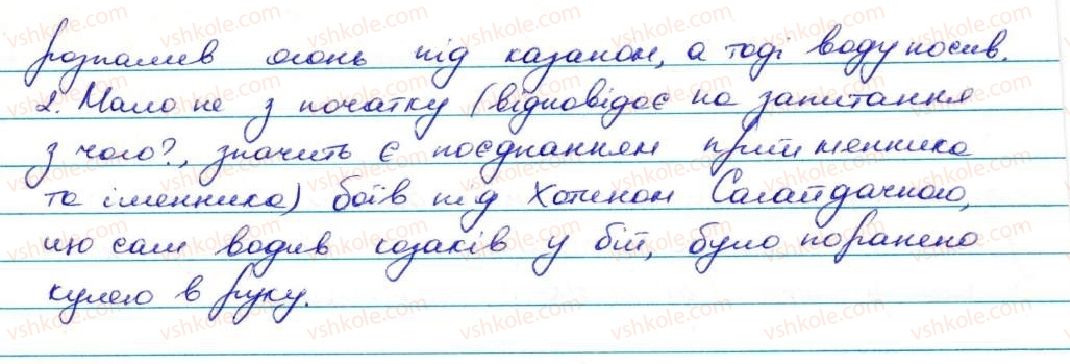 розпалив огонь під казаном, а тоді воду носив.
2. Мало не з початку (відповідає на запитання
з чого?, значить є поєднанням прийменника
та іменника) боїв під Хотином Сагайдачного,
що сам водив козаків у бій, було поранено
кулею в руку.